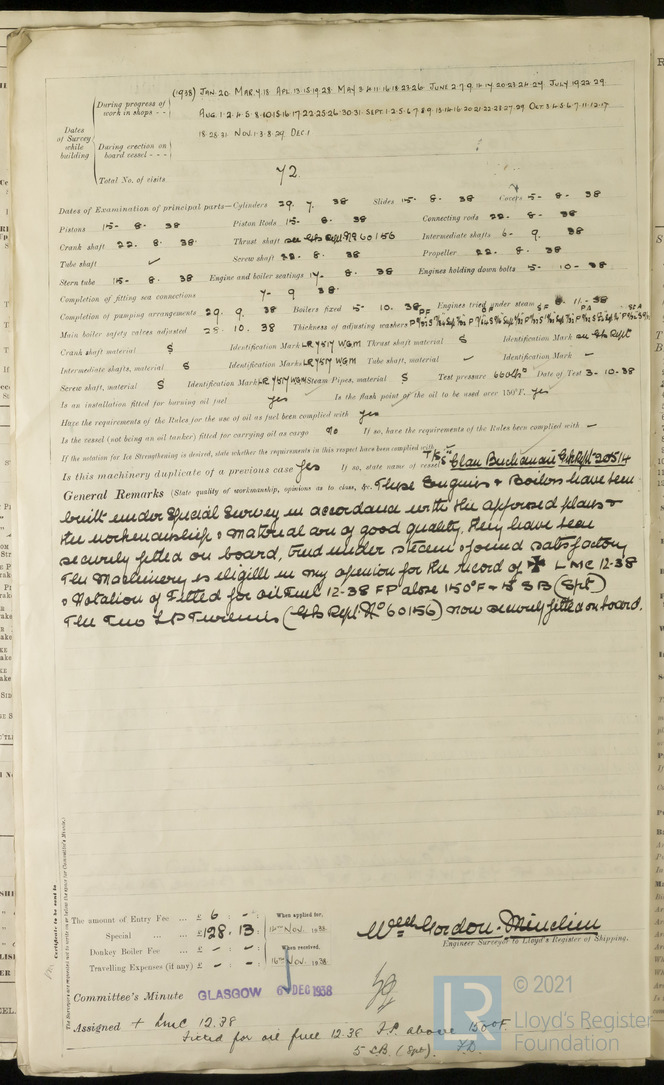 (1938) JAN. 20. MAR. 4.18. APL. 13.15.19.28. MAY 3.4.11.16.18.23.26. JUNE 2.7.9. 20.23.24.27. JULY 19.22.29.
During progress of work in shops - -
AUG. 1.2.4.5.8.10.15.16.17.22.25.26.30.31. SEPT. 1.2.5.6.7.8.9. 13.14.16.20.21.22.28.27.29. OCT. 3.4.5.6.7.11.12.17
Dates of Survey while building
During erection on board vessel - - -
18.25.31. NOV. 1.3.8.29. DEC. 1
Total No. of visits
72.
Dates of Examination of principal parts—Cylinders 29. 7. 38 Slides 15. 8. 38 Covers 5. 8. 38
Pistons 15. 8. 38 Piston Rods 15. 8. 38 Connecting rods 22. 8. 38
Crank shaft 22. 8. 38. Thrust shaft see Gls Rept 60156 Intermediate shafts 6. 9. 38
Tube shaft ✓ Screw shaft 22. 8. 38 Propeller 22. 8. 38
Stern tube 15. 8. 38 Engine and boiler seatings 17. 8. 38 Engines holding down bolts 5. 10. 38
Completion of fitting sea connections 7. 9 38.
Completion of pumping arrangements 29. 9. 38 Boilers fixed 5. 10. 38 Engines tried under steam 11. 38
Main boiler safety valves adjusted 28. 10. 38 Thickness of adjusting washers
Crank shaft material S Identification Mark LR 7517 WGM Thrust shaft material S Identification Mark on Gls Rept
Intermediate shafts, material S Identification Marks LR 7517 WGM Tube shaft, material – Identification Mark –
Screw shaft, material S Identification Mark LR 7517 WGM Steam Pipes, material S Test pressure 660 lbs Date of Test 3. 10. 38
Is an installation fitted for burning oil fuel yes Is the flash point of the oil to be used over 150°F. yes
Have the requirements of the Rules for the use of oil as fuel been complied with yes
Is the vessel (not being an oil tanker) fitted for carrying oil as cargo No If so, have the requirements of the Rules been complied with –
If the notation for Ice Strengthening is desired, state whether the requirements in this respect have been complied with
Is this machinery duplicate of a previous case yes If so, state name of vessel Clan Buchanan Gk Rept 20514
General Remarks (State quality of workmanship, opinions as to class, &c. These Engines & Boilers have been
built under Special Survey in accordance with the approved plans &
the workmanship & material are of good quality, they have been
securely fitted on board, tried under steam & found satisfactory
The Machinery is eligible in my opinion for the record of ✠ LMC 12-38
& Notation of Fitted for oil Fuel 12-38 FP above 150°F & 5 SB (Spt)
The Two LP Turbines (Gls Rept No 60156) now securely fitted on board.
Certificate to be sent to
The Surveyors are requested not to write on or below the space for Committee's Minute.
The amount of Entry Fee ... £ 6 : - : When applied for,
Special ... ... £ 128. 13 : 12th Nov. 1938.
Donkey Boiler Fee ... £ - : - : When received,
Travelling Expenses (if any) £ - : - : 16th Nov. 1938
Wm Gordon-Minchin
Engineer Surveyor to Lloyd's Register of Shipping.
Committee's Minute GLASGOW 6 DEC 1938
Assigned + LMC 12.38
Fitted for oil fuel 12.38 F.P. above 150°F.
5 S.B. (Spt). F.D.
LR
© 2021
Lloyd's Register
Foundation